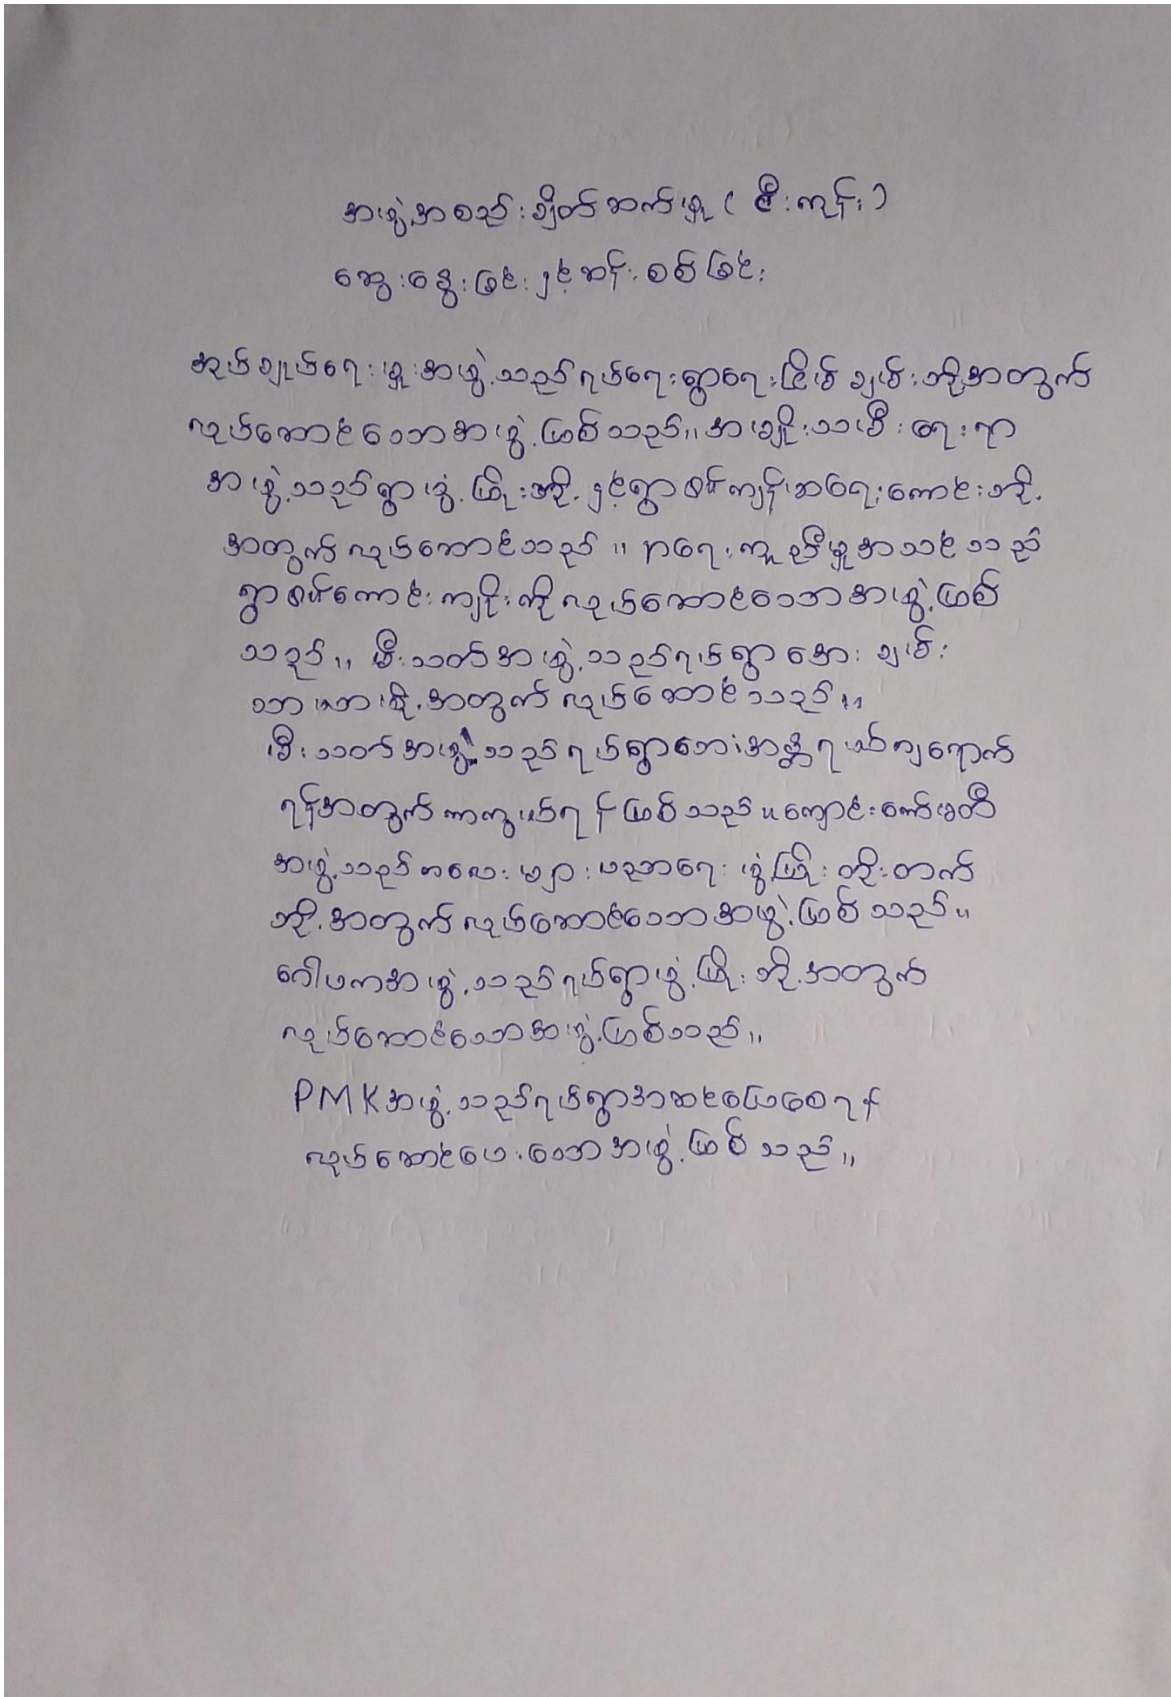 အဖွဲ့အစည်းချိတ်ဆက်မှု ( ဇီးကုန်း )
ဆွေးနွေးခြင်းနှင့်ဆန်းစစ်ခြင်း
အုပ်ချုပ်ရေးမှူးအဖွဲ့သည်ရပ်ရေးရွာရေးငြိမ်ချမ်းဘို့အတွက်
လုပ်ဆောင်သောအဖွဲ့ဖြစ်သည်။ အမျိုးသမီးရေးရာ
အဖွဲ့သည်ရွာဖွံ့ဖြိုးဘို့နှင့်ရွာ၏ကျန်းမာရေးကောင်းဘို့
အတွက်လုပ်ဆောင်သည်။ နာရေးကူညီမှုအသင်းသည်
ရွာ၏ကောင်းကျိုးကိုလုပ်ဆောင်သောအဖွဲ့ဖြစ်
သည်။ မီးသတ်အဖွဲ့သည်ရပ်ရွာအေးချမ်း
သာယာဖို့အတွက်လုပ်ဆောင်သည်။
မီးသတ်အဖွဲ့သည်ရပ်ရွာဘေးအန္တရာယ်ကျရောက်
ရန်အတွက်ကာကွယ်ရန်ဖြစ်သည်။ကျောင်းကော်မတီ
အဖွဲ့သည်ကလေးများပညာရေးဖွံ့ဖြိုးတိုးတက်
ဘို့အတွက်လုပ်ဆောင်သောအဖွဲ့ဖြစ်သည်။
ဂေါပကအဖွဲ့သည်ရပ်ရွာဖွံ့ဖြိုးဘို့အတွက်
လုပ်ဆောင်သောအဖွဲ့ဖြစ်သည်။
PMKအဖွဲ့သည်ရပ်ရွာအဆင်ပြေစေရန်
လုပ်ဆောင်ပေးသောအဖွဲ့ဖြစ်သည်။